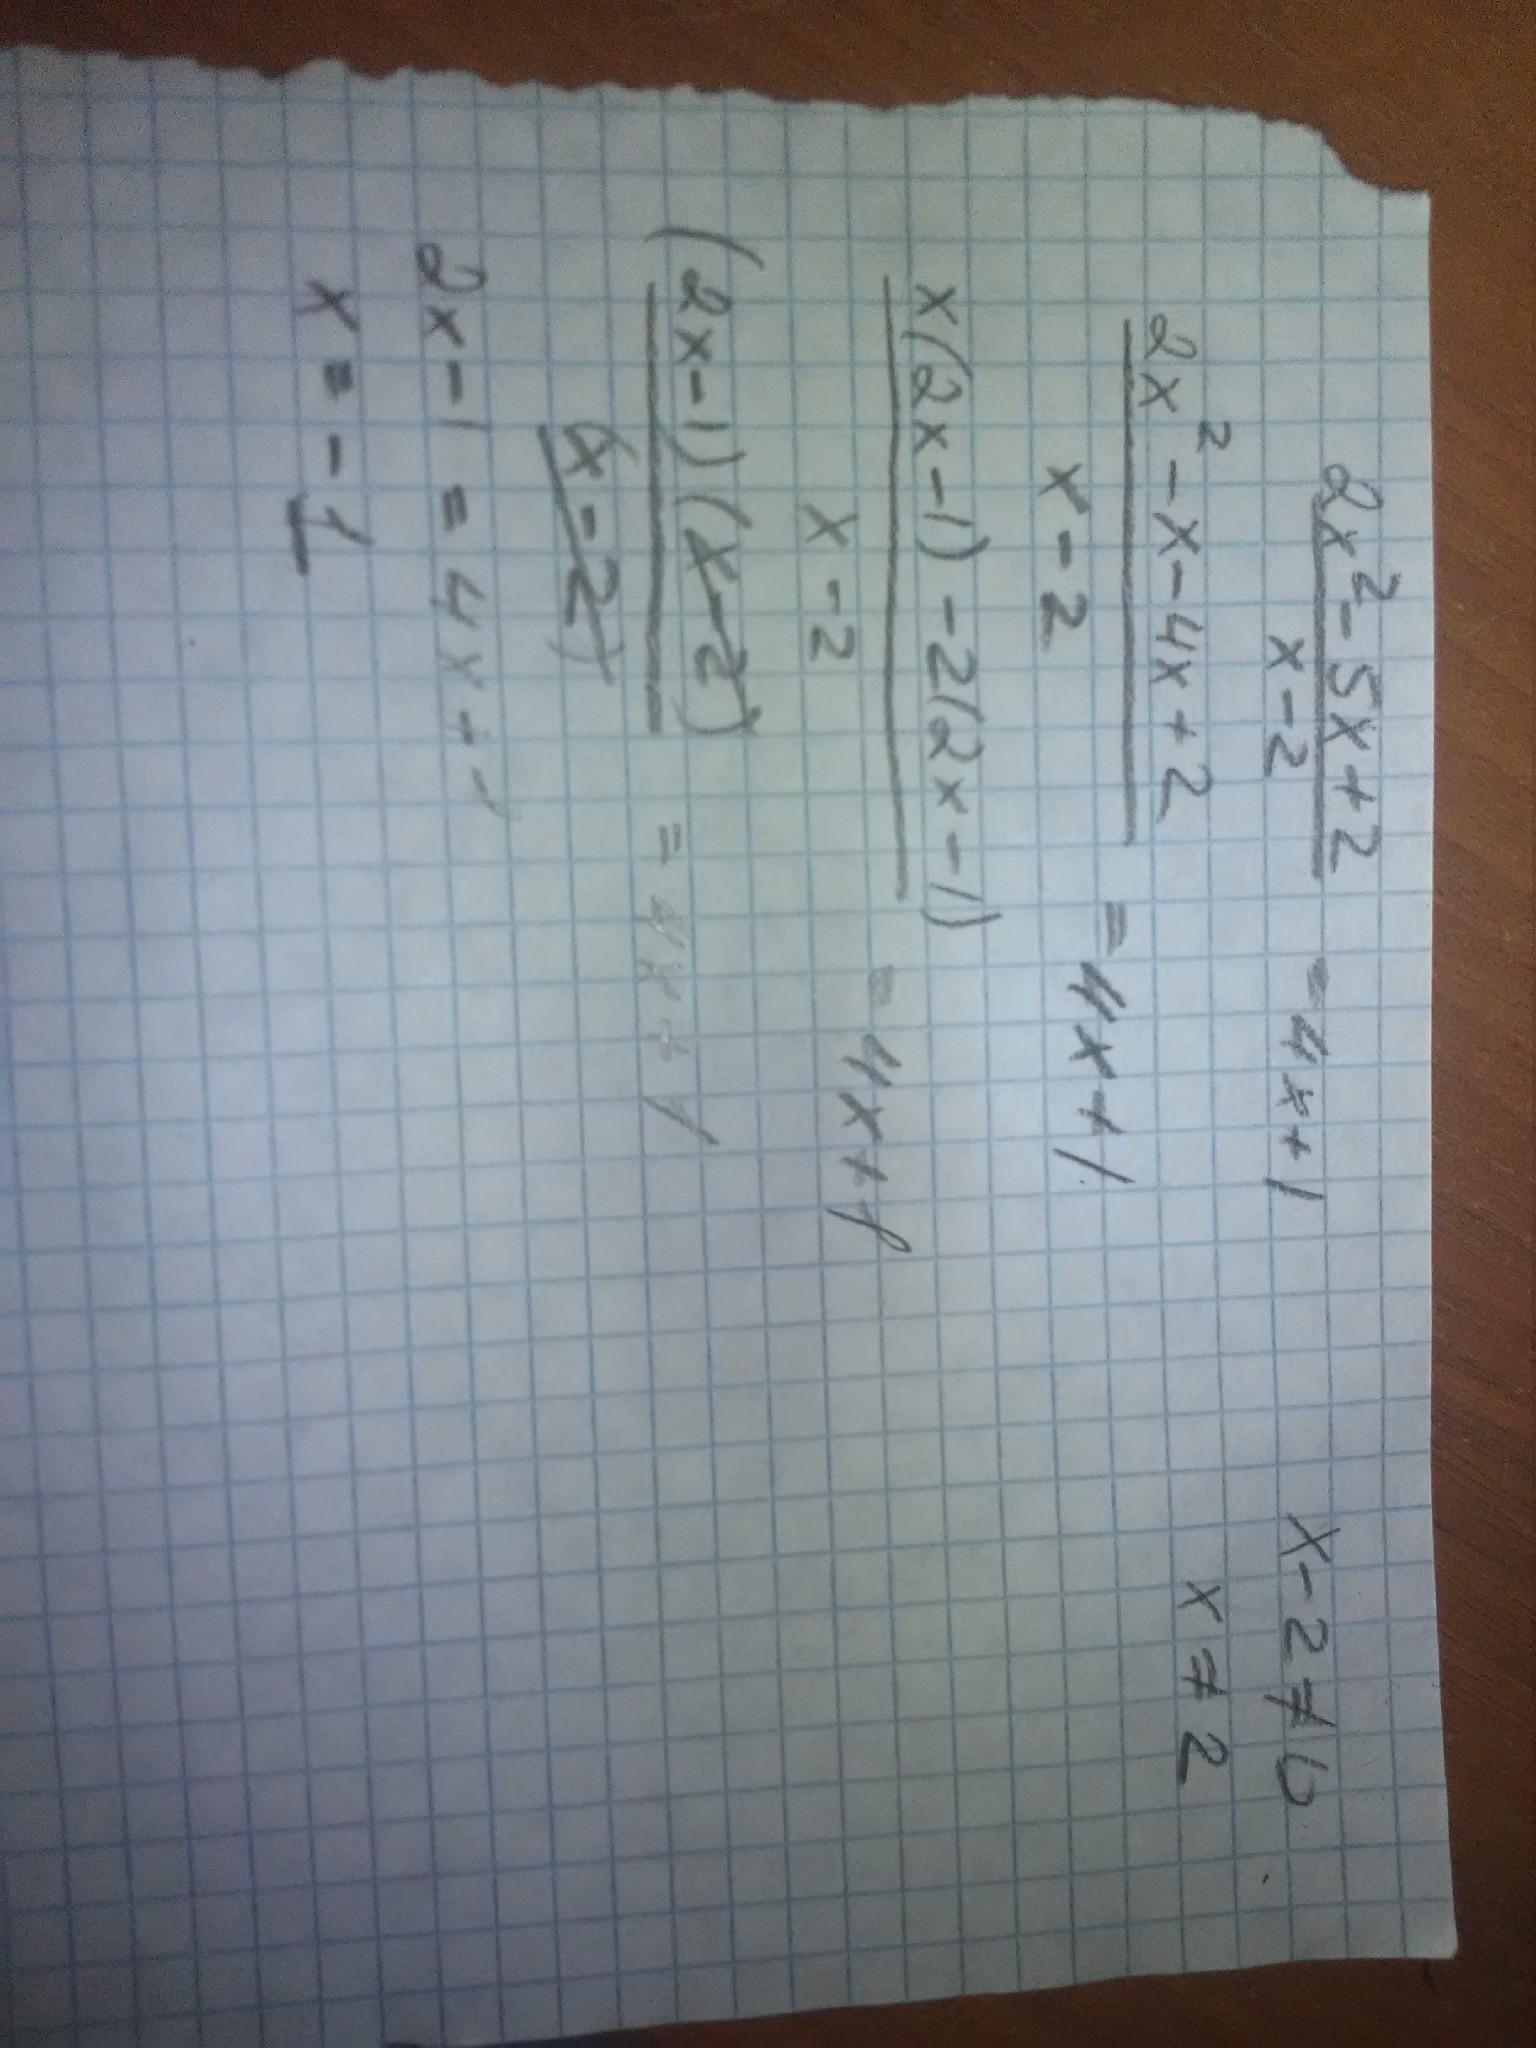 2x² - 5x + 2 / x - 2 = 4x + 1 x - 2 ≠ 0
2x² - x - 4x + 2 / x - 2 = 4x + 1 x ≠ 2
x(2x - 1) - 2(2x - 1) / x - 2 = 4x + 1
(2x - 1)(x - 2) / (x - 2) = 4x + 1
2x - 1 = 4x + 1
x = - 1